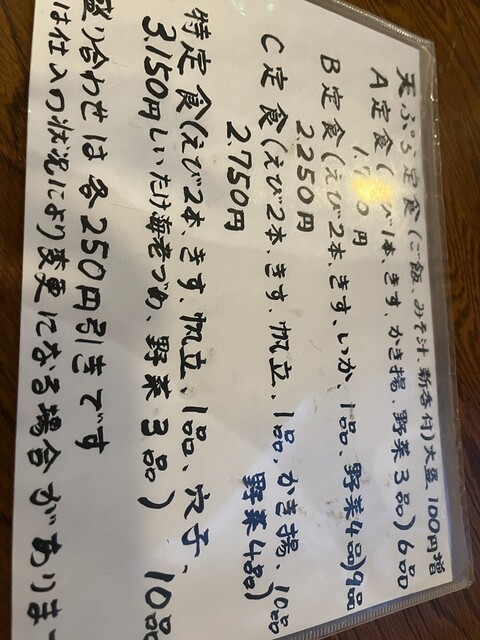 天ぷら定食(ご飯、みそ汁、新香付)大盛 100円増
A定食(えび1本、きす、かき揚、野菜3品)6品
円
B定食(えび2本、きす、いか、1品、野菜4品)9品
2.250円
C定食(えび2本、きす、帆立、1品、かき揚、10品
2.750円 野菜4品)
特定食(えび2本、きす、帆立、1品、穴子、
3.150円 しいたけ海老づめ、野菜3品) 10品
盛り合わせは各250円引きです
は仕入の状況により変更になる場合がありま